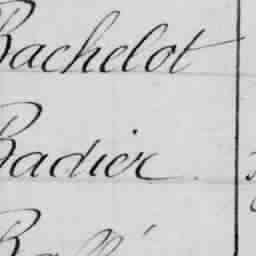 Bachelot
Badier